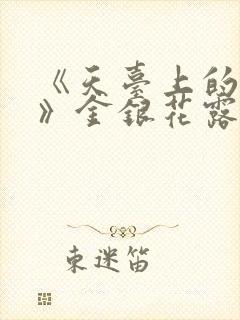 《天臺上的
》金銀花露
東迷笛